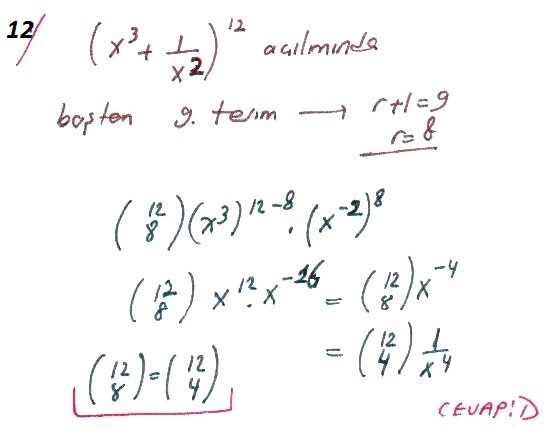 12/ (x³ + 1/x²)¹² açılmında
baştan 9. terim → r+1=9
r=8
(12 8)(x³)¹²⁻⁸ · (x⁻²)⁸
(12 8) x¹² · x⁻¹⁶ = (12 8) x⁻⁴
(12 8) = (12 4)
= (12 4) 1/x⁴
CEVAP: D